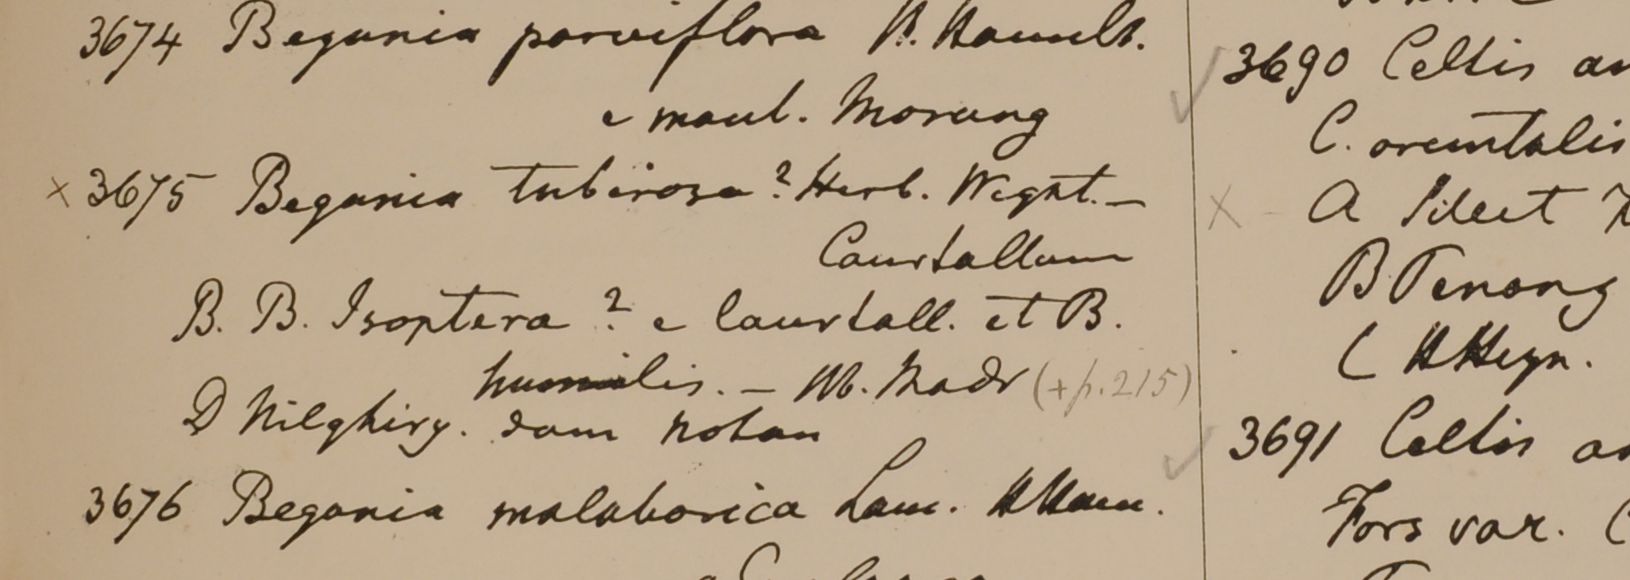 3674 Begonia parviflora H. Hamilt.
e mont. Morung
x 3675 Begonia tuberosa? Herb. Wight. —
Courtallum
B. B. Isoptera? e Courtall. et B.
humilis. — M. Madr (+p. 215)
D Nilghiry. dom Noton
3676 Begonia malabarica Lam. HHam.
3690 Celtis
C. orientalis
x - A Silect
B Penang
C HHeyn.
3691 Celtis
Fors var. C